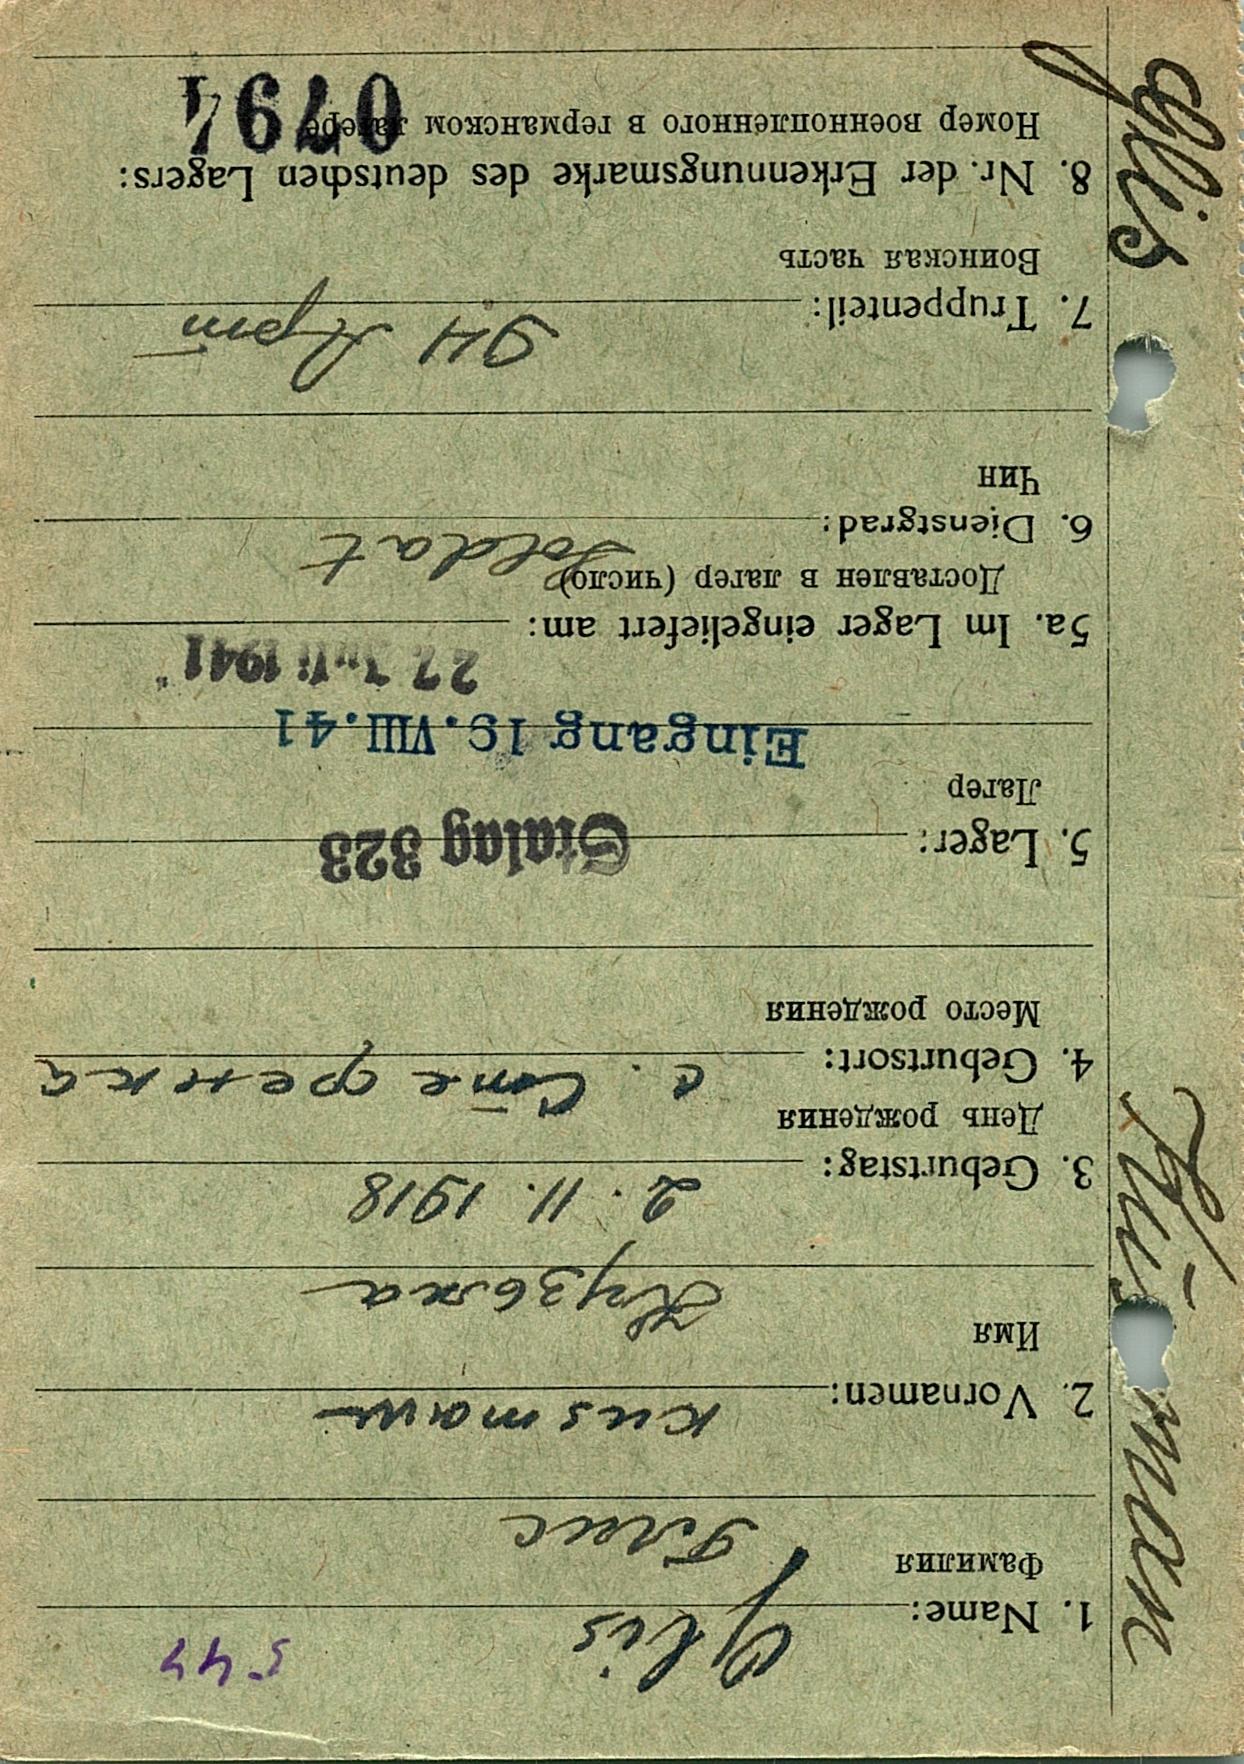 547
Glis
1. Name:
Фамилия
Глис
kusmann
2. Vornamen:
Имя
Кузьма
2. 11. 1918
3. Geburtstag:
День рождения
4. Geburtsort:
Место рождения
5. Lager:
Stalag 323
Лагер
Eingang 19.VIII.41
22 Juli 1941
5a. Im Lager eingeliefert am:
Доставлен в лагер (число)
Soldat
6. Dienstgrad:
Чин
94 Арт
7. Truppenteil:
Воинская часть
8. Nr. der Erkennungsmarke des deutschen Lagers:
Номер военнопленного в германском лагере
0794
Glis
Kusman